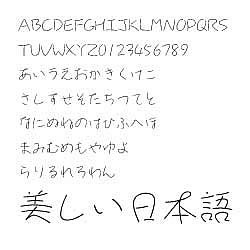 ABCDEFGHIJKLMNOPQRS
TUVWXYZ0123456789
あいうえおかきくけこ
さしすせそたちつてと
なにぬねのはひふへほ
まみむめもやゆよ
らりるれろわん
美しい日本語